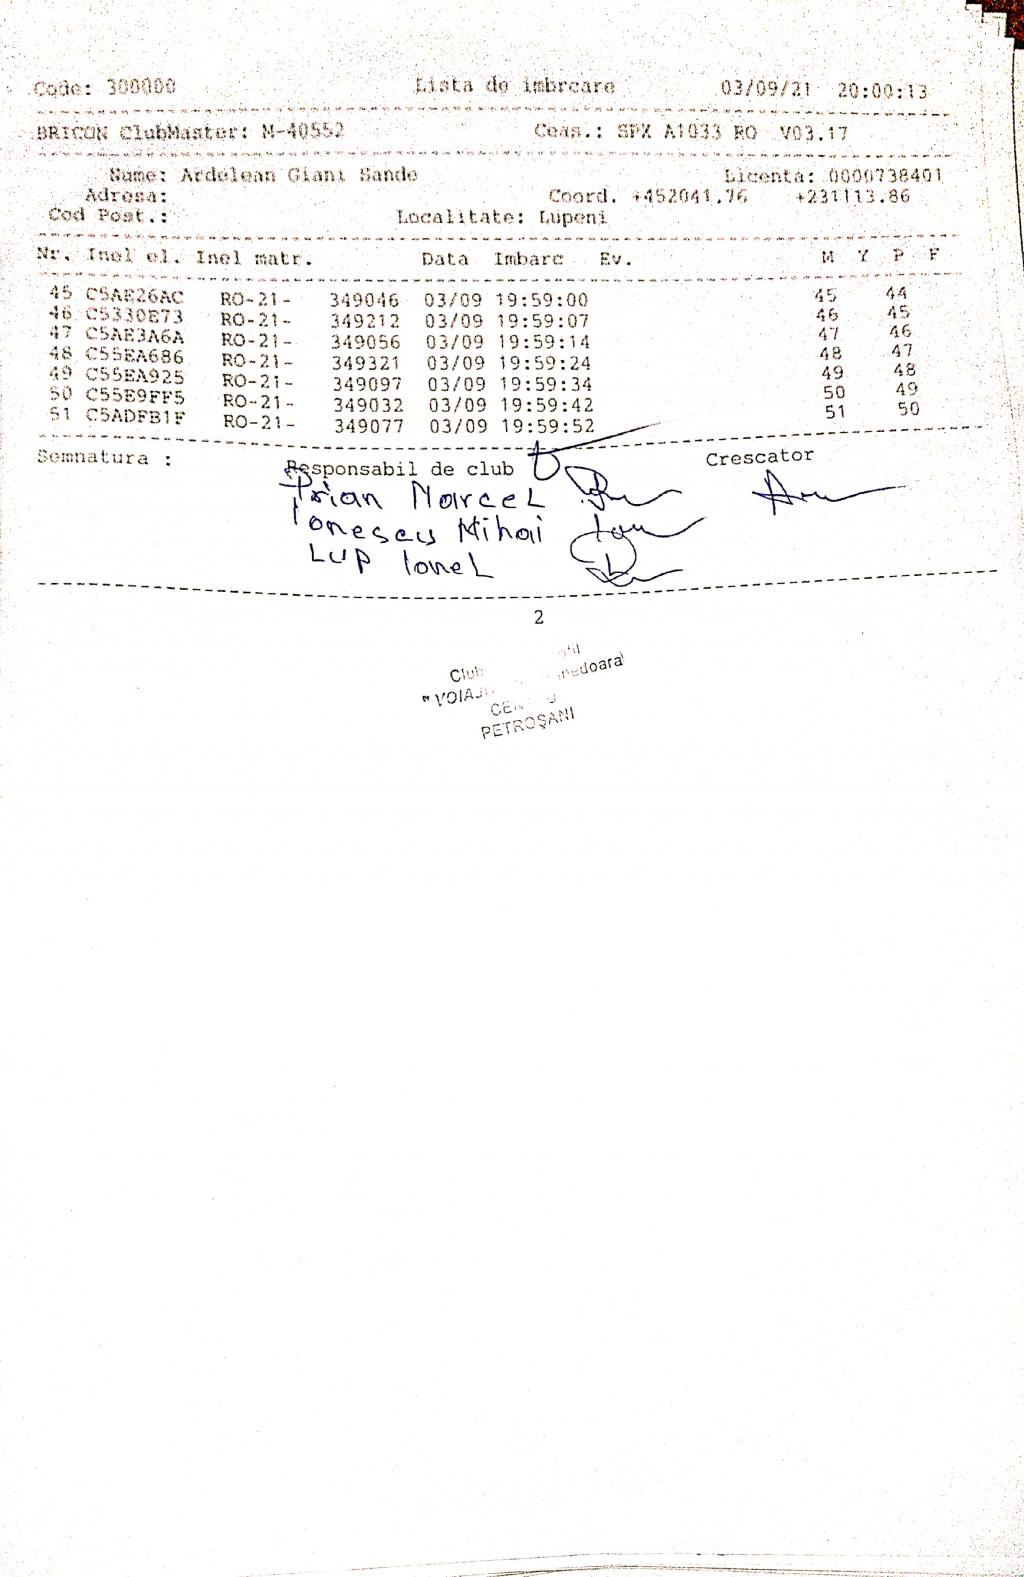 Code: 300000 Lista de imbrcare 03/09/21 20:00:13
BRICON ClubMaster: M-40552 Ceas.: SPX A1033 RO V03.17
Nume: Ardelean Giani Sande Licenta: 0000738401
Adresa: Coord. +452041.76 +231113.86
Cod Post.: Localitate: Lupeni
Nr. Inel el. Inel matr. Data Imbarc Ev. M Y P F
45 C5AE26AC RO-21- 349046 03/09 19:59:00 45 44
46 C5330E73 RO-21- 349212 03/09 19:59:07 46 45
47 C5AE3A6A RO-21- 349056 03/09 19:59:14 47 46
48 C55EA686 RO-21- 349321 03/09 19:59:24 48 47
49 C55EA925 RO-21- 349097 03/09 19:59:34 49 48
50 C55E9FF5 RO-21- 349032 03/09 19:59:42 50 49
51 C5ADFB1F RO-21- 349077 03/09 19:59:52 51 50
Semnatura : Responsabil de club Crescator
Marcel
Ionescu Mihai
LUP Ionel
2
Club
PETROȘANI